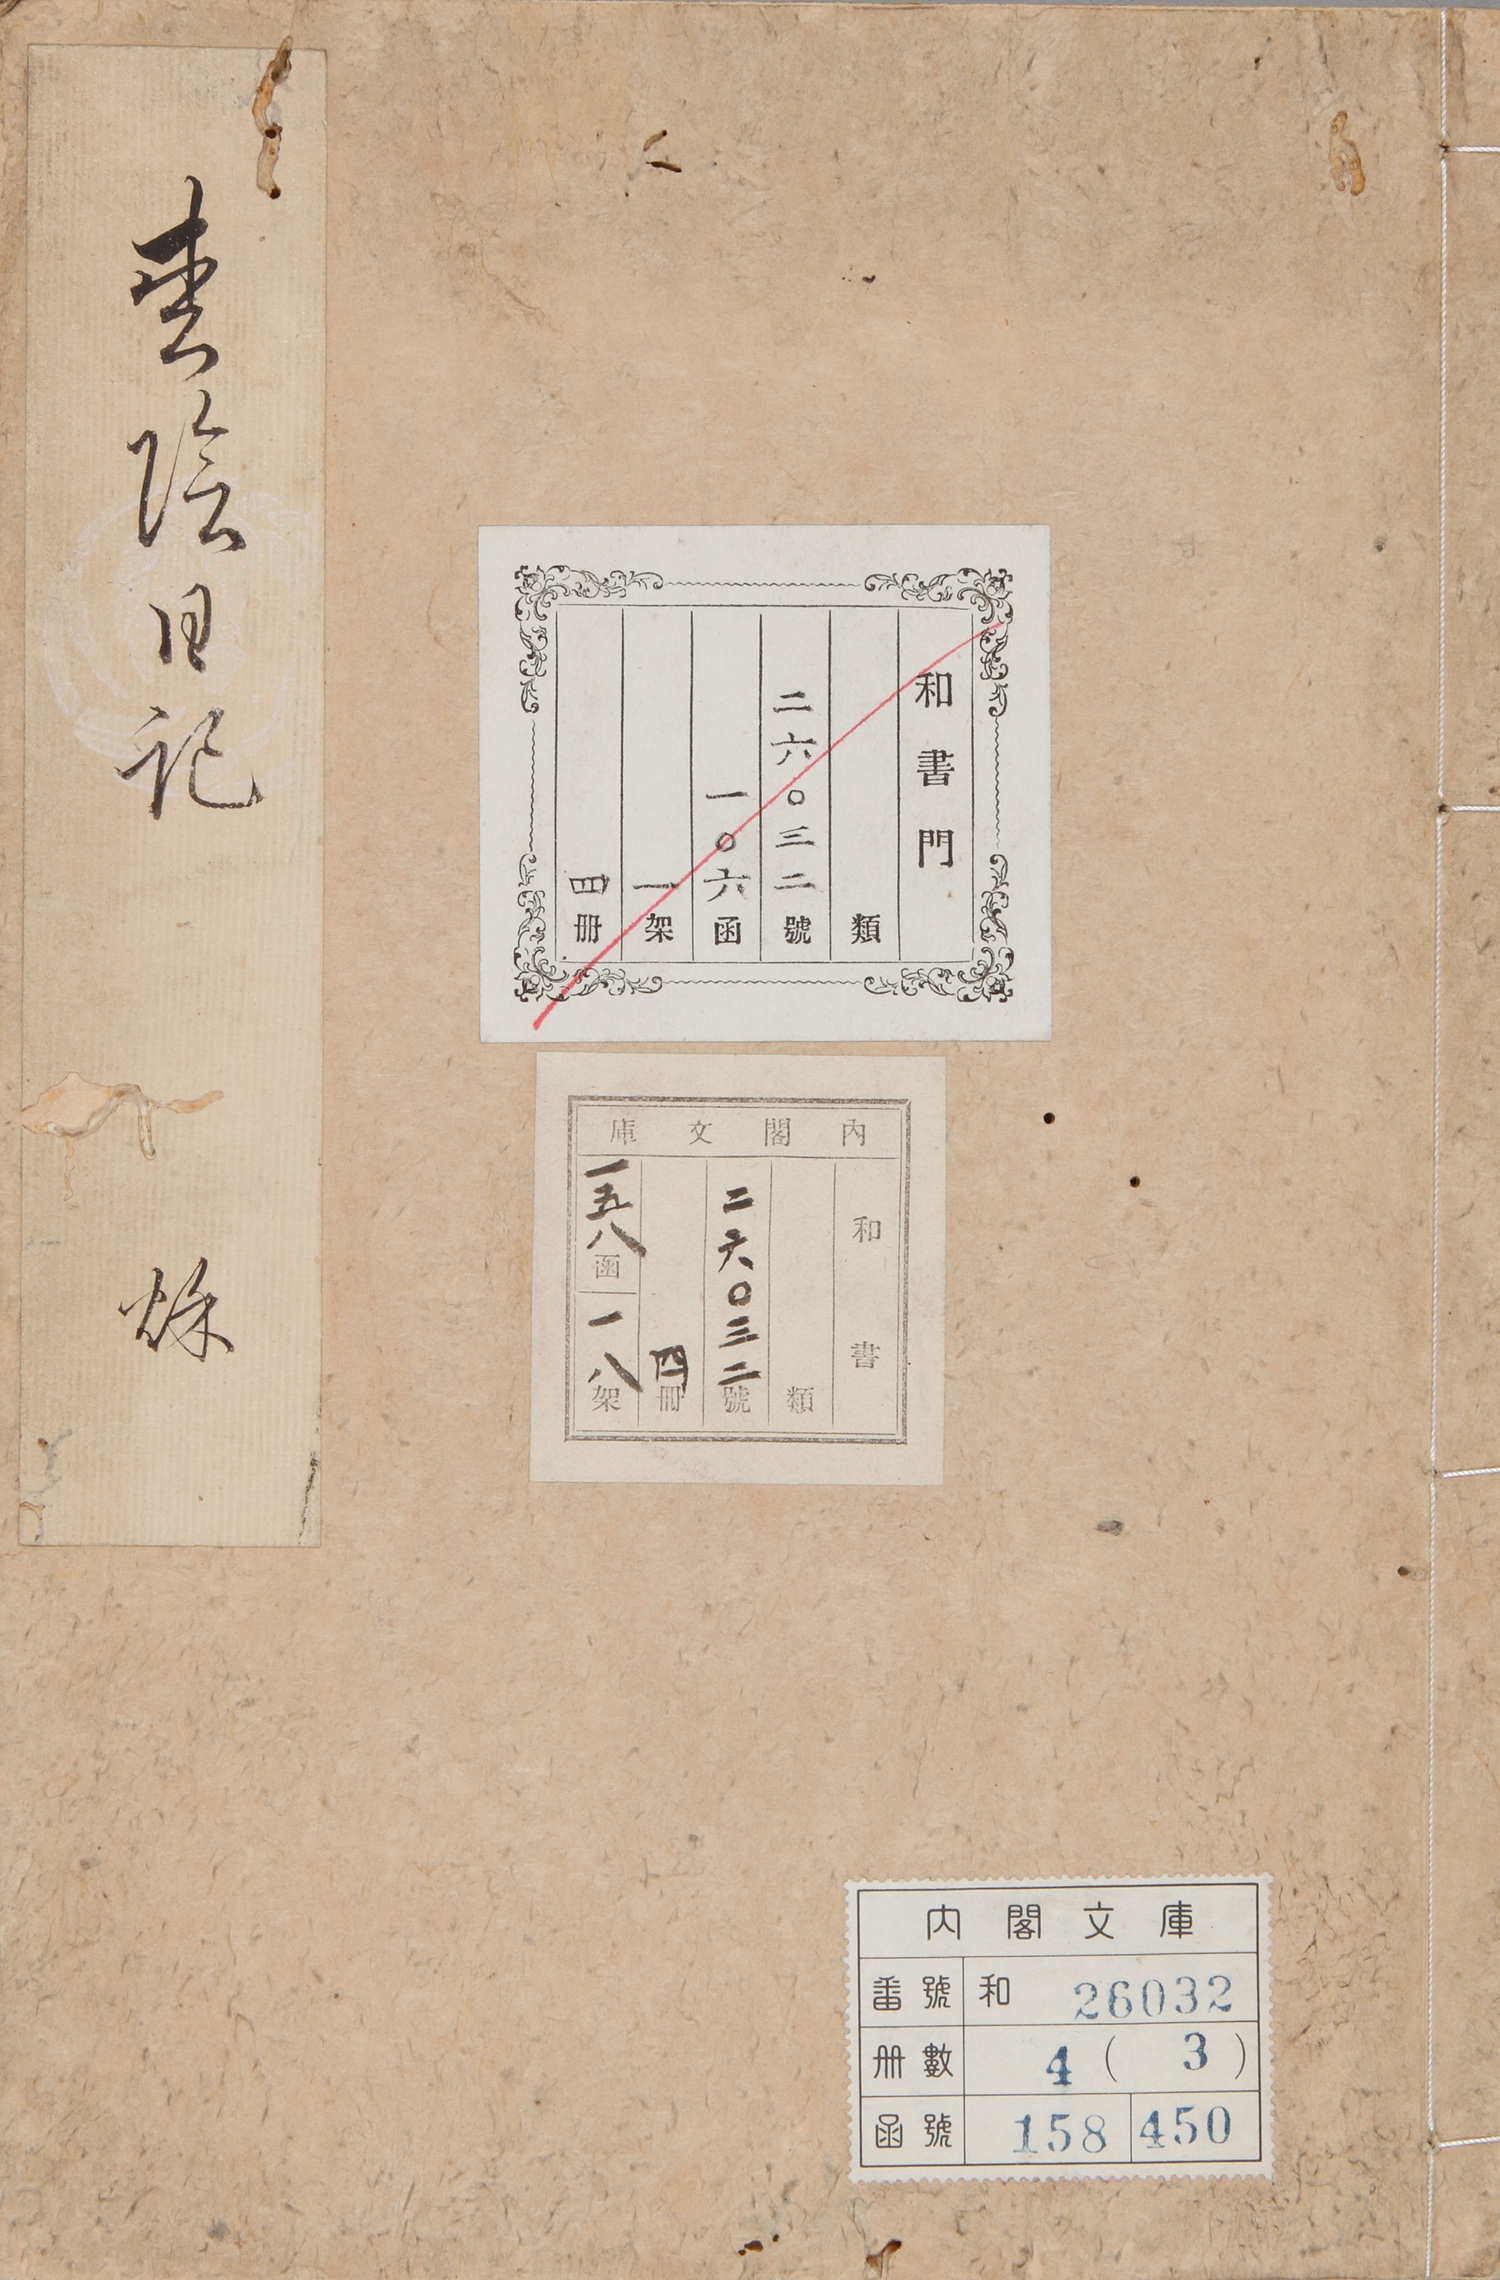 枩陰日記
秌
和書門
類
二六〇三二號
一〇六函
一架
四冊
內閣文庫
和書
類
二六〇三二號
四冊
一五八函
一八架
内閣文庫
番號 和 26032
冊數 4 ( 3 )
函號 158 450